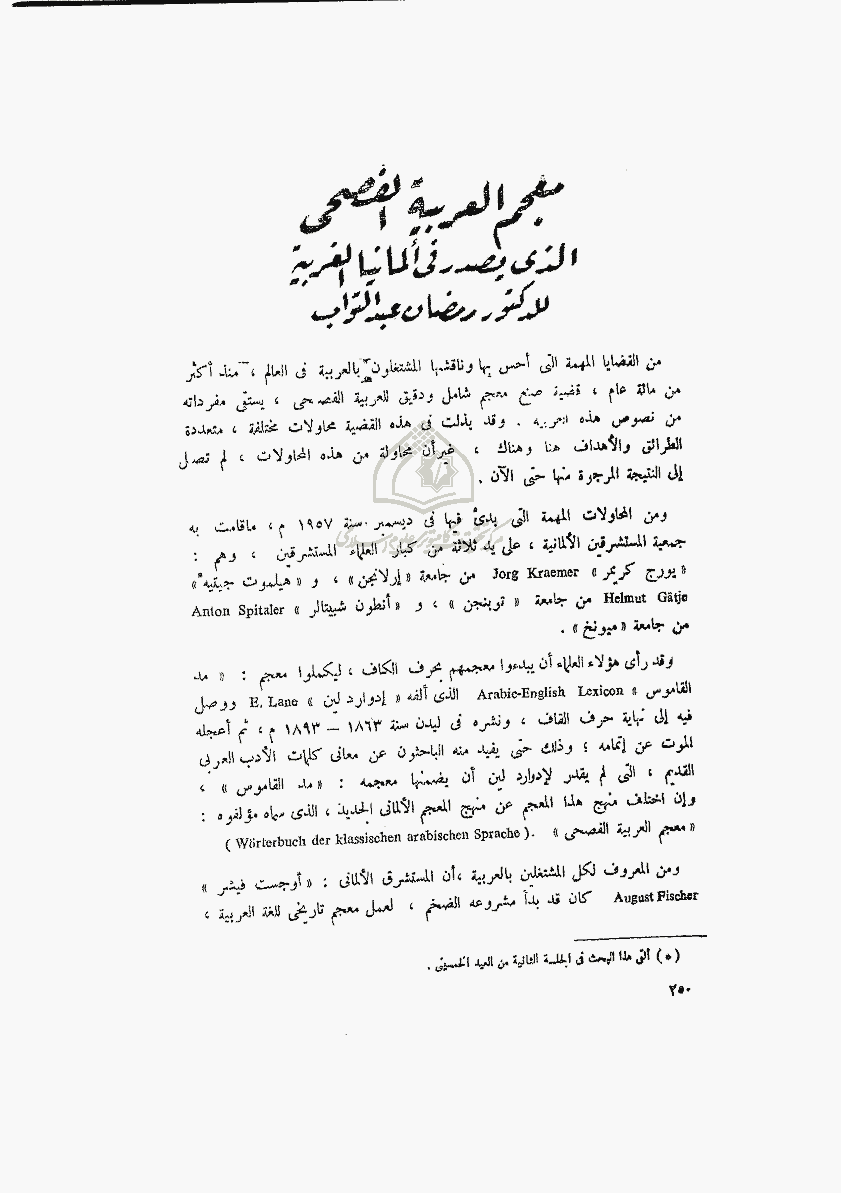 معجم العربية الفصحى
الذى يصدر فى ألمانيا الغربية
للدكتور رمضان عبد التواب
من القضايا المهمة التى أحس بها وناقشها المشتغلون بالعربية فى العالم ، منذ أكثر
من مائة عام ، قضية صنع معجم شامل ودقيق للعربية الفصحى ، يستقى مفرداته
من نصوص هذه العربية . وقد بذلت فى هذه القضية محاولات مختلفة ، متعددة
الطرائق والأهداف هنا وهناك ، غير أن محاولة من هذه المحاولات ، لم تصل
إلى النتيجة المرجوة منها حتى الآن .
ومن المحاولات المهمة التى بدئ فيها فى ديسمبر سنة ١٩٥٧ م ، ماقامت به
جمعية المستشرقين الألمانية ، على يد ثلاثة من كبار العلماء المستشرقين ، وهم :
« يورج كريمر » Jorg Kraemer من جامعة « إرلانجن » ، و « هيلموت جيتيه »
Helmut Gätje من جامعة « توبنجن » ، و « أنطون شبيتالر » Anton Spitaler
من جامعة « ميونخ » .
وقد رأى هؤلاء العلماء أن يبدءوا معجمهم بحرف الكاف ، ليكملوا معجم : « مد
القاموس » Arabic-English Lexicon الذى ألفه « إدوارد لين » E. Lane ووصل
فيه إلى نهاية حرف القاف ، ونشره فى ليدن سنة ١٨٦٣ — ١٨٩٣ م ، ثم أعجله
الموت عن إتمامه ؛ وذلك حتى يفيد منه الباحثون عن معانى كلمات الأدب العربى
القديم ، التى لم يقدر لإدوارد لين أن يضمنها معجمه : « مد القاموس » ،
وإن اختلف منهج هذا المعجم عن منهج المعجم الألمانى الجديد ، الذى سماه مؤلفوه :
« معجم العربية الفصحى » .( Wörterbuch der klassischen arabischen Sprache )
ومن المعروف لكل المشتغلين بالعربية ، أن المستشرق الألمانى : « أوجست فيشر »
August Fischer كان قد بدأ مشروعه الضخم ، لعمل معجم تاريخى للغة العربية ،
(*) ألقى هذا البحث فى الجلسة الثانية من العيد الخمسينى .
٢٥٠